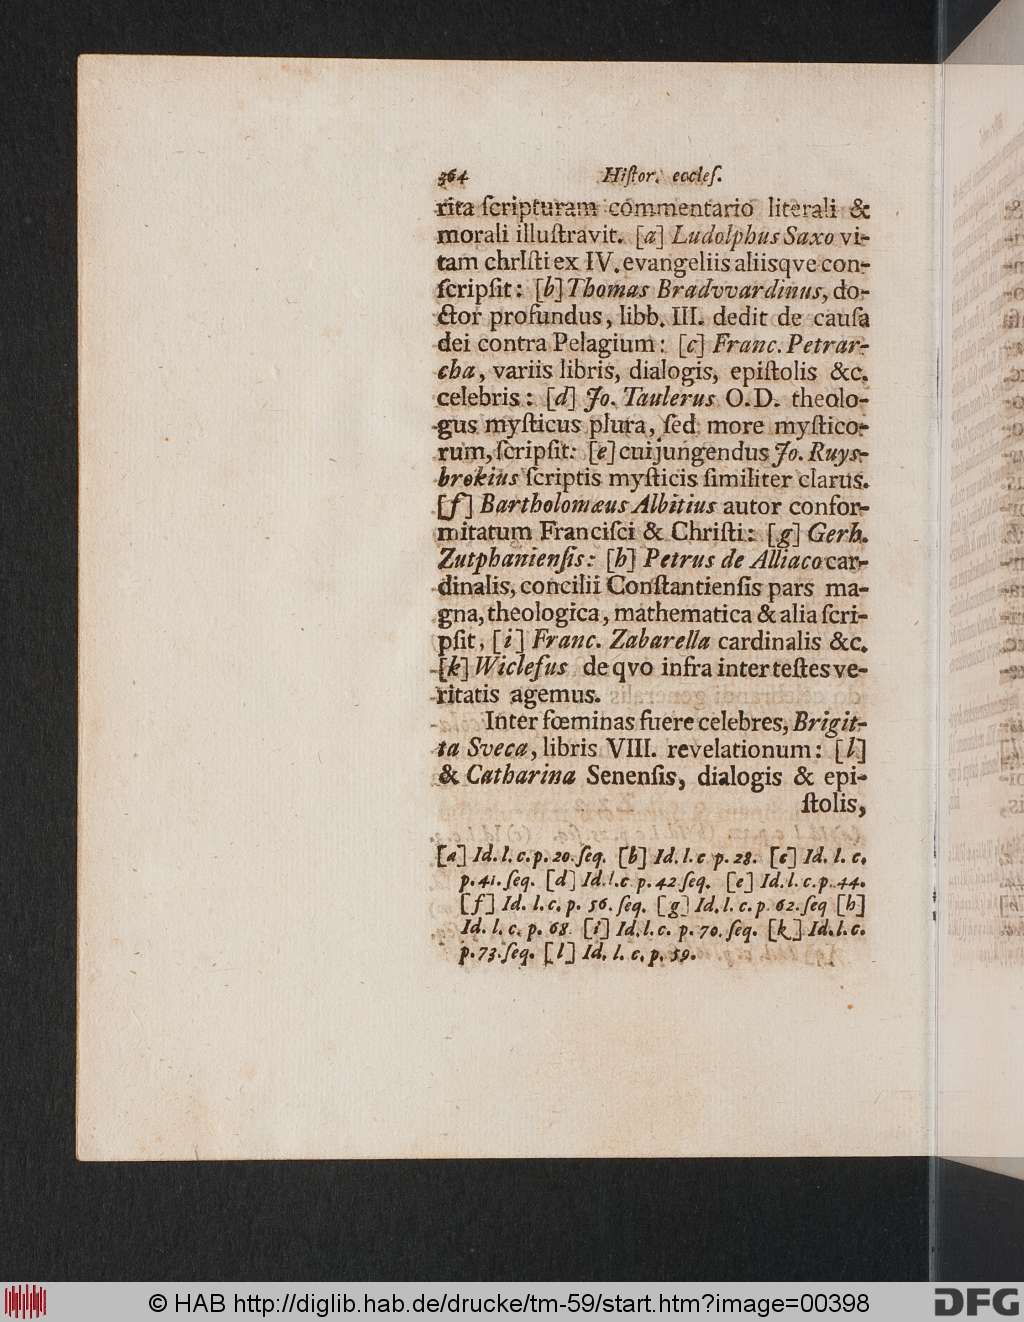 364 Hiſtor. eccleſ.
rita ſcripturam commentario literali &
morali illuſtravit. [a] Ludolphus Saxo vi-
tam chrIſti ex IV. evangeliis aliisqve con-
ſcripſit: [b] Thomas Bradvvardinus, do-
ctor profundus, libb. III. dedit de cauſa
dei contra Pelagium: [c] Franc. Petrar-
cha, variis libris, dialogis, epiſtolis &c.
celebris: [d] Jo. Taulerus O.D. theolo-
gus myſticus plura, ſed more myſtico-
rum, ſcripſit: [e] cui jungendus Jo. Ruys-
brokius ſcriptis myſticis ſimiliter clarus.
[f] Bartholomæus Albitius autor confor-
mitatum Franciſci & Chriſti: [g] Gerh.
Zutphanienſis: [h] Petrus de Alliaco car-
dinalis, concilii Conſtantienſis pars ma-
gna, theologica, mathematica & alia ſcri-
pſit, [i] Franc. Zabarella cardinalis &c.
[k] Wiclefus de qvo infra inter teſtes ve-
ritatis agemus.
Inter fœminas fuere celebres, Brigit-
ta Sveca, libris VIII. revelationum: [l]
& Catharina Senenſis, dialogis & epi-
ſtolis,
[a] Id. l. c. p. 20. ſeq. [b] Id. l. c p. 28. [c] Id. l. c.
p. 41. ſeq. [d] Id. l. c p. 42 ſeq. [e] Id. l. c. p. 44.
[f] Id. l. c. p. 56. ſeq. [g] Id. l. c. p. 62. ſeq [h]
Id. l. c. p. 68. [i] Id. l. c. p. 70. ſeq. [k] Id. l. c.
p. 73. ſeq. [l] Id. l. c. p. 59.
© HAB http://diglib.hab.de/drucke/tm-59/start.htm?image=00398
DFG